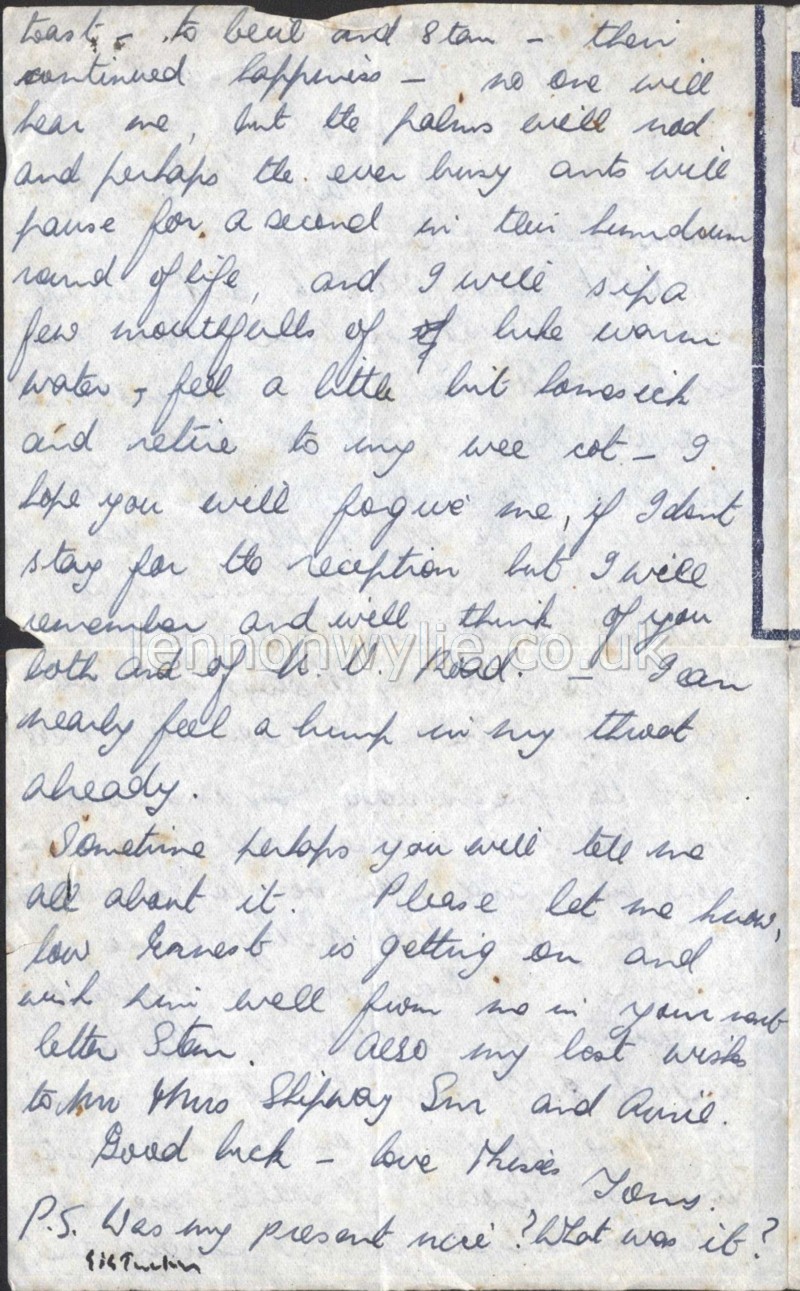 toast - to Beul and Stan - their
continued happiness - no one will
hear me, but the palms will nod
and perhaps the ever busy ants will
pause for a second in their humdrum
round of life, and I will sip a
few mouthfulls of luke warm
water, feel a little bit homesick
and retire to my wee cot - I
hope you will forgive me, if I dont
stay for the reception but I will
remember and will think of you
both and of N. V. Road. - I can
nearly feel a lump in my throat
already.
Sometime perhaps you will tell me
all about it. Please let me know,
how Ernest is getting on and
wish him well from me in your next
letter Stan. Also my best wishes
to Mr & Mrs Shipway Snr and
Good luck - love & kisses
Tony.
P.S. Was my present nice? What was it?
lennonwylie.co.uk